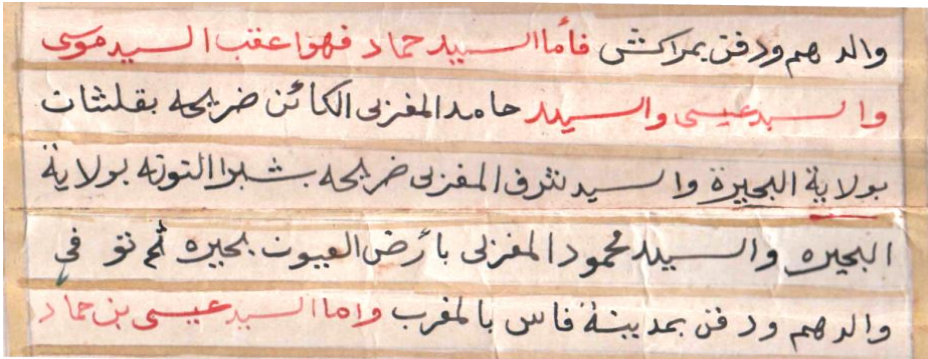 والدهم ودفن بمراكش فأما السيد حماد فهو اعقب السيد موسى
والسيد عيسى والسيد حامد المغربى الكائن ضريحه بقلشات
بولاية البحيرة والسيد شرف المغربى ضريحه بشبرا التونه بولاية
البحيره والسيد محمود المغربى بأرض العيون بحيره ثم توفى
والدهم ودفن بمدينة فاس بالمغرب واما السيد عيسى بن حماد